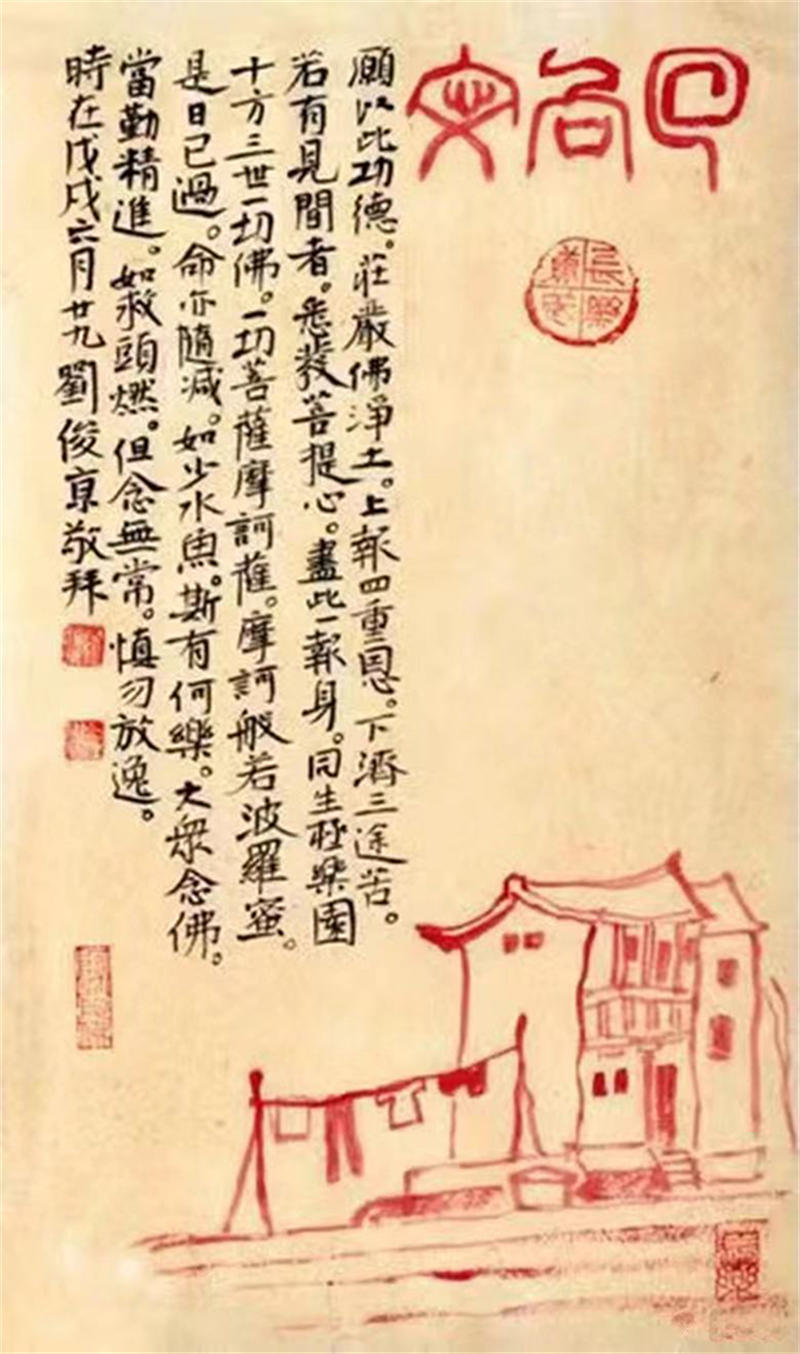 回向文
願以此功德。莊嚴佛淨土。上報四重恩。下濟三途苦。
若有見聞者。悉發菩提心。盡此一報身。同生極樂國
十方三世一切佛。一切菩薩摩訶薩。摩訶般若波羅蜜。
是日已過。命亦隨減。如少水魚。斯有何樂。大眾念佛。
當勤精進。如救頭燃。但念無常。慎勿放逸。
時在戊戌六月廿九劉俊京敬拜